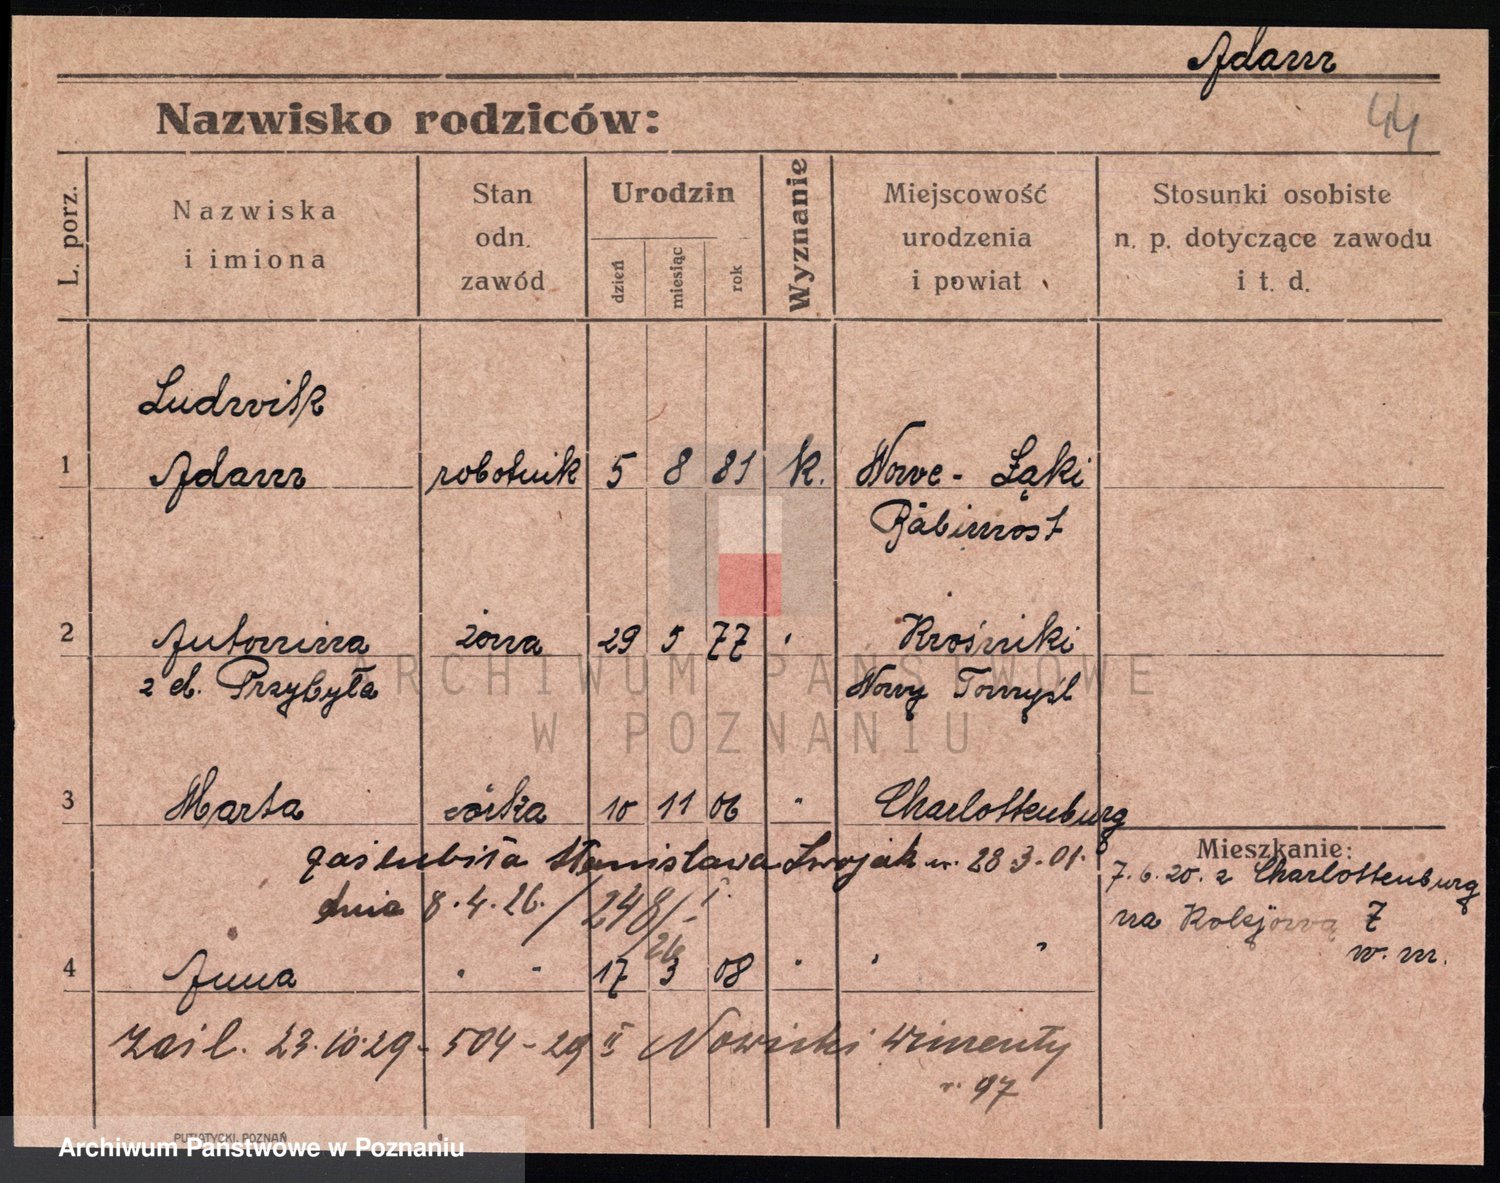 Adam
44
Nazwisko rodziców:
L. porz.
Nazwiska
i imiona
Stan
odn.
zawód
Urodzin
dzień
miesiąc
rok
Wyznanie
Miejscowość
urodzenia
i powiat
Stosunki osobiste
n. p. dotyczące zawodu
i t. d.
Ludwik
1 Adam robotnik 5 8 81 k. Nowe - Łąki
Babimost
2 Antonina żona 29 5 77 " Krośniki
z d. Przybyła Nowy Tomyśl
3 Marta córka 10 11 06 " Charlottenburg
zaślubiła Stanisława ur. 28 3. 01.
dnia 8. 4. 26. / 248/ I.
26
4 Anna " " 17 3 08 " " "
Zaśl. 23.10.29 - 504 - 29 II Nowicki Wincenty
r. 97
Mieszkanie:
7. 6. 20. z Charlottenburg
na 7
w. m.
PUTIATYCKI, POZNAŃ
ARCHIWUM PAŃSTWOWE
W POZNANIU
Archiwum Państwowe w Poznaniu